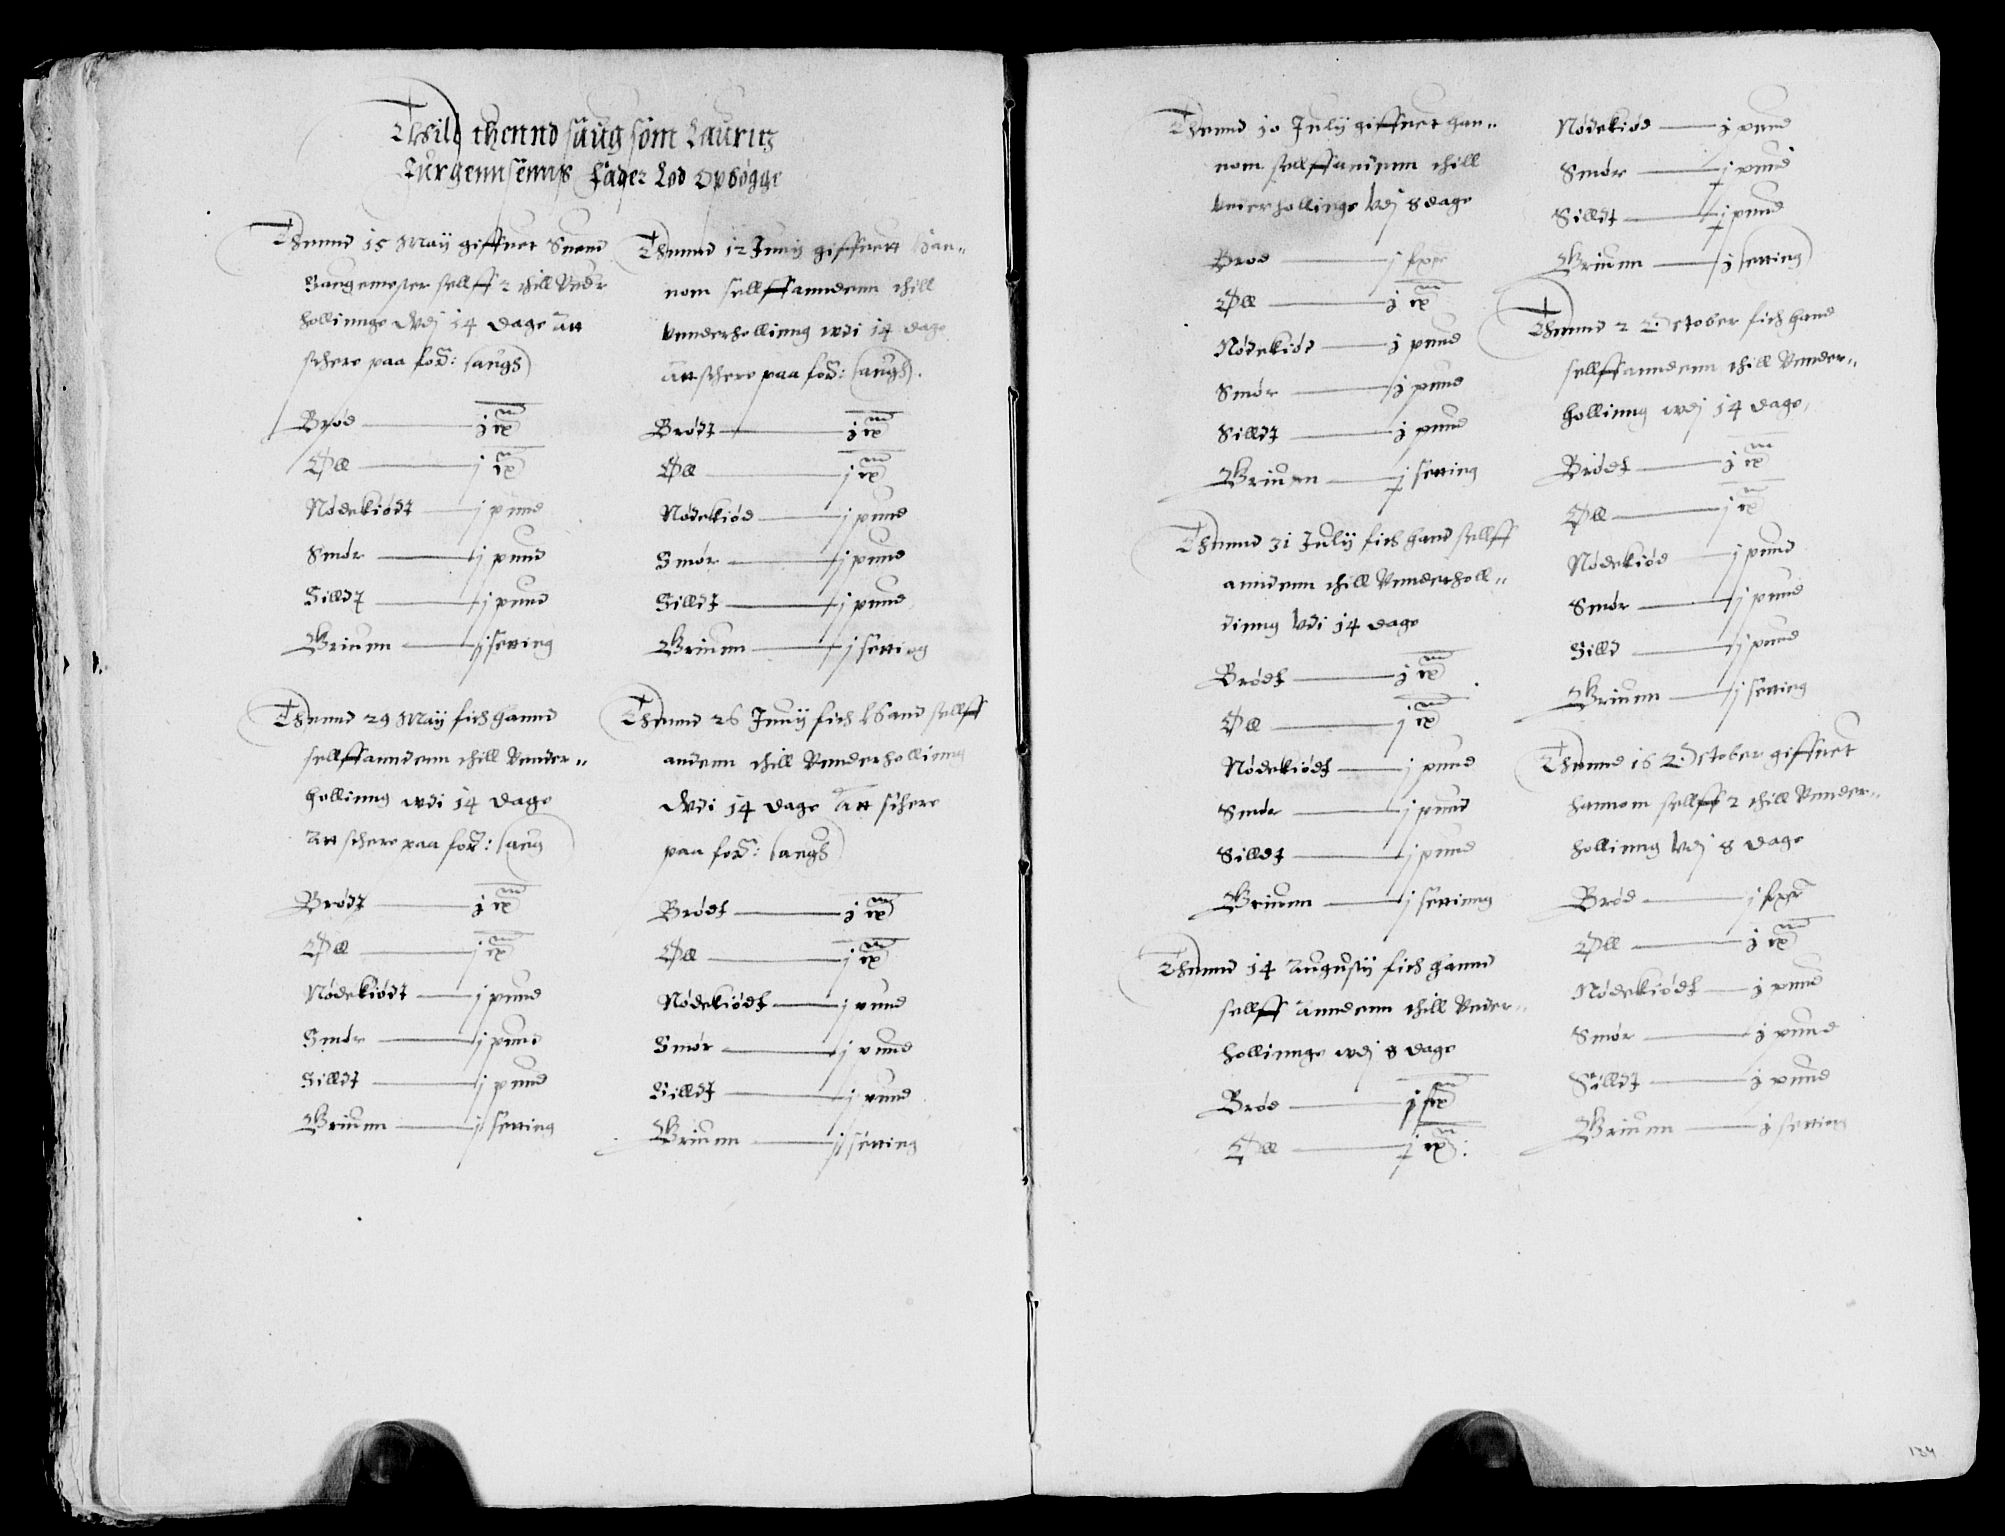 Thill thennd saug som Lauritz
Jurgennsenns fader lod opbøgge
Thennd 15 Maij giffuet Suend
Saugemester sellff 2 thill Under
hollinnge wdj 14 dage att
schere paa for: saugh
Brød j
Øll j
Nødekiødt j pund
Smør j pund
Silldt j pund
Griunn j setting
Thennd 29 Maij fich hannd
sellffanndenn thill Vnder〃
hollinng wdi 14 dage
Att schere paa for: saug
Brødt j
Øll j
Nødekiødt j pund
Smør j pund
Silldt j pund
Griunn j setting
Thennd 12 Junij giffuett han〃
nom sellffanndenn thill
Vnnderhollinng wdi 14 dage
att schere paa for: saugh.
Brødt j
Øll j
Nødekiød j pund
Smør j pund
Silldt j pund
Griunn j setting
Thennd 26 Junij fich Hand sellff
andenn thill Vnnderhollinng
wdi 14 dage att schere
paa for: saugh
Brødt j
Øll j
Nødekiødt j pund
Smør j pund
Silldt j pund
Griunn j setting
Thennd 10 Julij giffuet han〃
nom sellffandenn thill
Vnderhollinge wdj 8 dage
Brød j
Øll j
Nødekiød j pund
Smør j pund
Silldt j pund
Griunn j setting
Thennd 31 Julij fich hand sellff
anndenn thill Vnnderholl〃
dinng wdi 14 dage
Brødt j
Øll j
Nødekiødt j pund
Smør j pund
Silldt j pund
Griunn j settinng
Thennd 14 Augustij fich hannd
sellff Anndenn thill Vnder〃
hollinnge wdj 8 dage
Brød
Øll j
Nødekiød j pund
Smør j pund
Silldt j pund
Griunn j setting
Thennd 2 October fich hand
sellffanndenn thill Vnnder〃
hollinng wdj 14 dage,
Brødt j
Øll j
Nødekiød j pund
Smør j pund
Silld j pund
Griunn j setting
Thennd 16 October giffuet
hannom sellff 2 thill Vnnder〃
hollinng wdj 8 dage
Brød j
Øll j
Nødekiødt j pund
Smør j pund
Silldt j pund
Griunn j setting
134